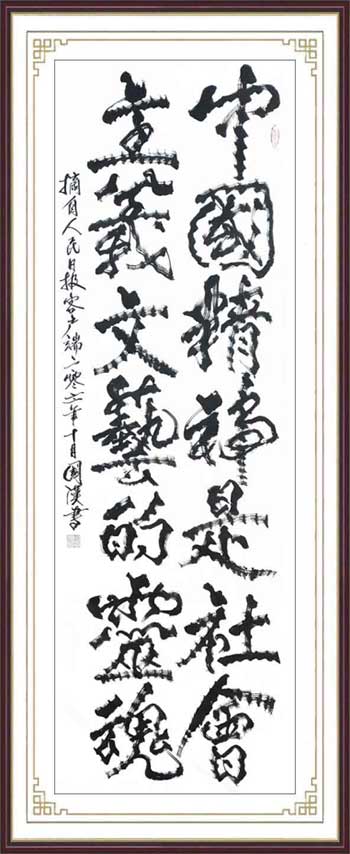 中國精神是社會
主義文藝的靈魂
摘自人民日报客户端二零年十月國漢書